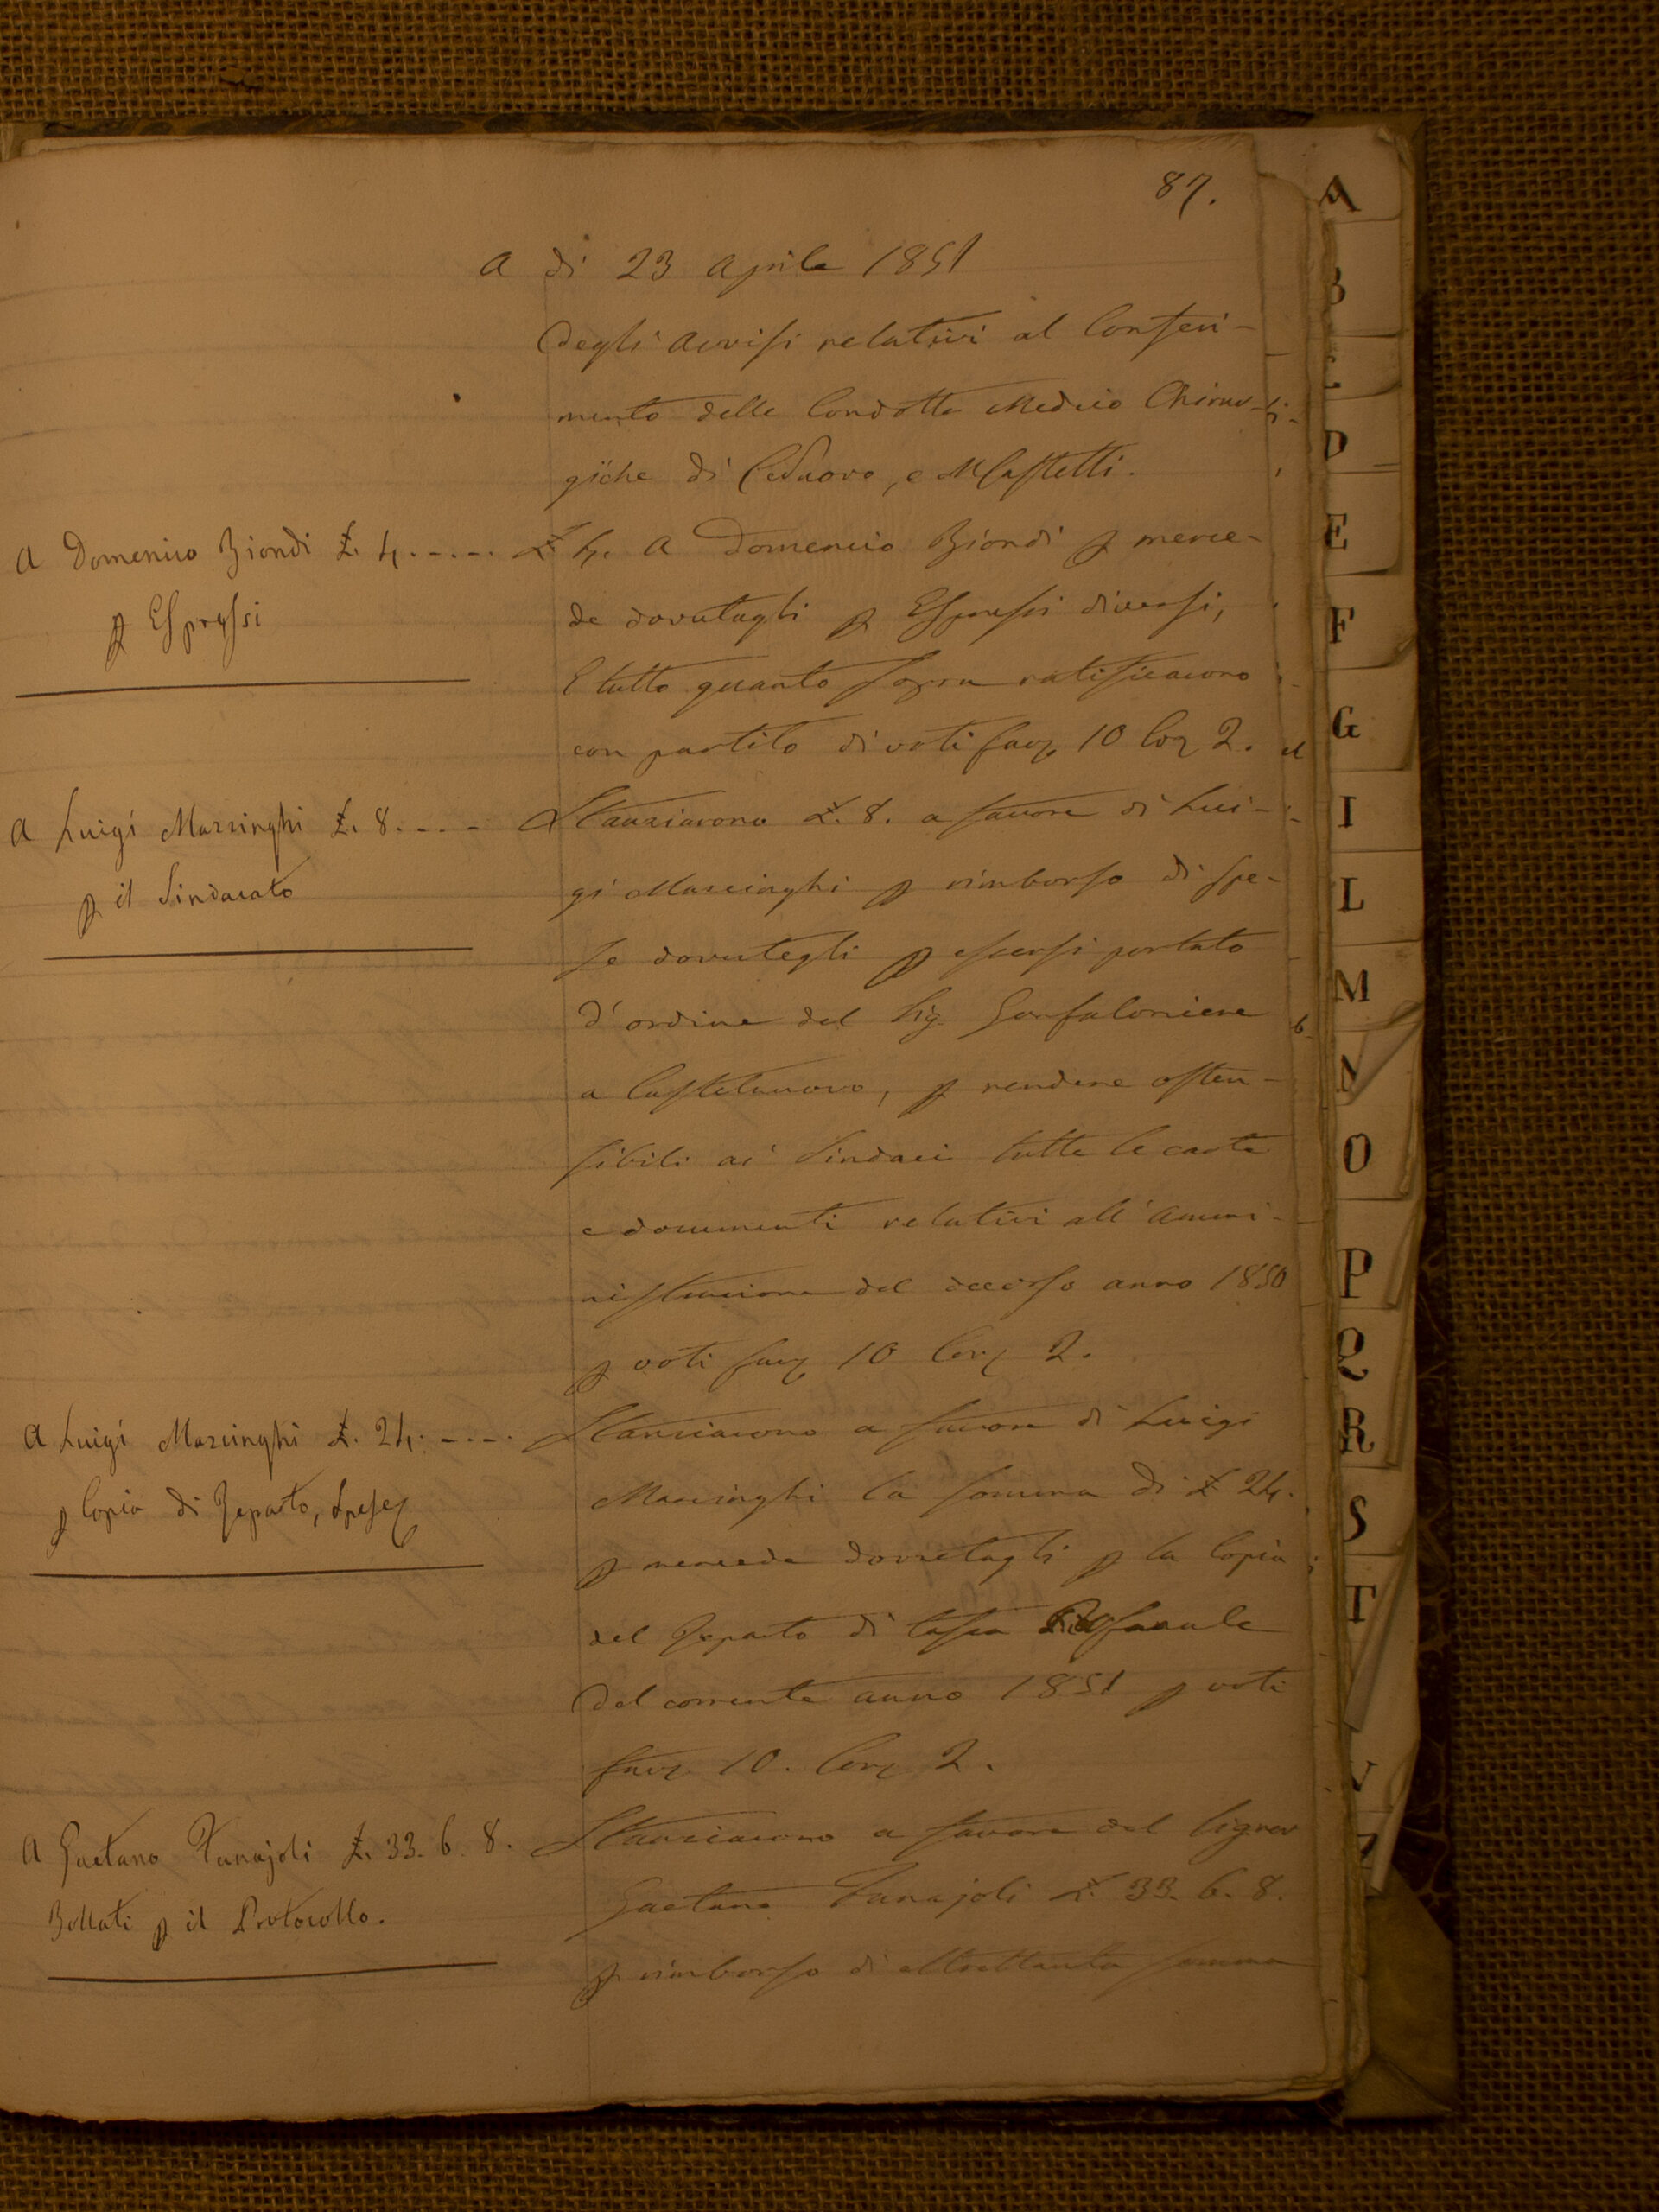 87.
A dì 23 Aprile 1851
degli Avvisi relativi al Conferi-
mento delle Condotte Medico Chirur-
giche di C. Nuovo, e M. Castelli.
A Domenico Biondi £. 4. - - - -
p Espressi
£ 4. A Domenico Biondi p merce-
de dovutagli p Espressi diversi,
E tutto quanto sopra ratificarono
con partito di voti favz. 10 Conz 2.
A Luigi Marzinghi £. 8. - - -
p il Sindacato
Stanziarono £. 8. a favore di Lui-
gi Marcinghi p rimborso di spe-
se dovutegli p essersi portato
d'ordine del Sig. Gonfaloniere
a Castelnuovo, p rendere osten-
sibili ai Sindaci tutte le carte
e documenti relativi all'Ammi-
nistrazione del decorso anno 1850
p voti favz 10 Conz 2.
A Luigi Marcinghi £. 24. - - - -
p Copia di Reparto, Spesez
Stanziarono a favore di Luigi
Marcinghi la somma di £ 24.
p mercede dovutagli p la Copia
del Reparto di tassa
del corrente anno 1851 p voti
favz 10. Conz 2.
A Gaetano Funajoli £. 33. 6. 8.
Bollati p il Protocollo.
Stanziarono a favore del Signor
Gaetano Funajoli £. 33. 6. 8.
p rimborso di altrettanta somma
A
B
C
D
E
F
G
I
L
M
N
O
P
Q
R
S
T
V
Z